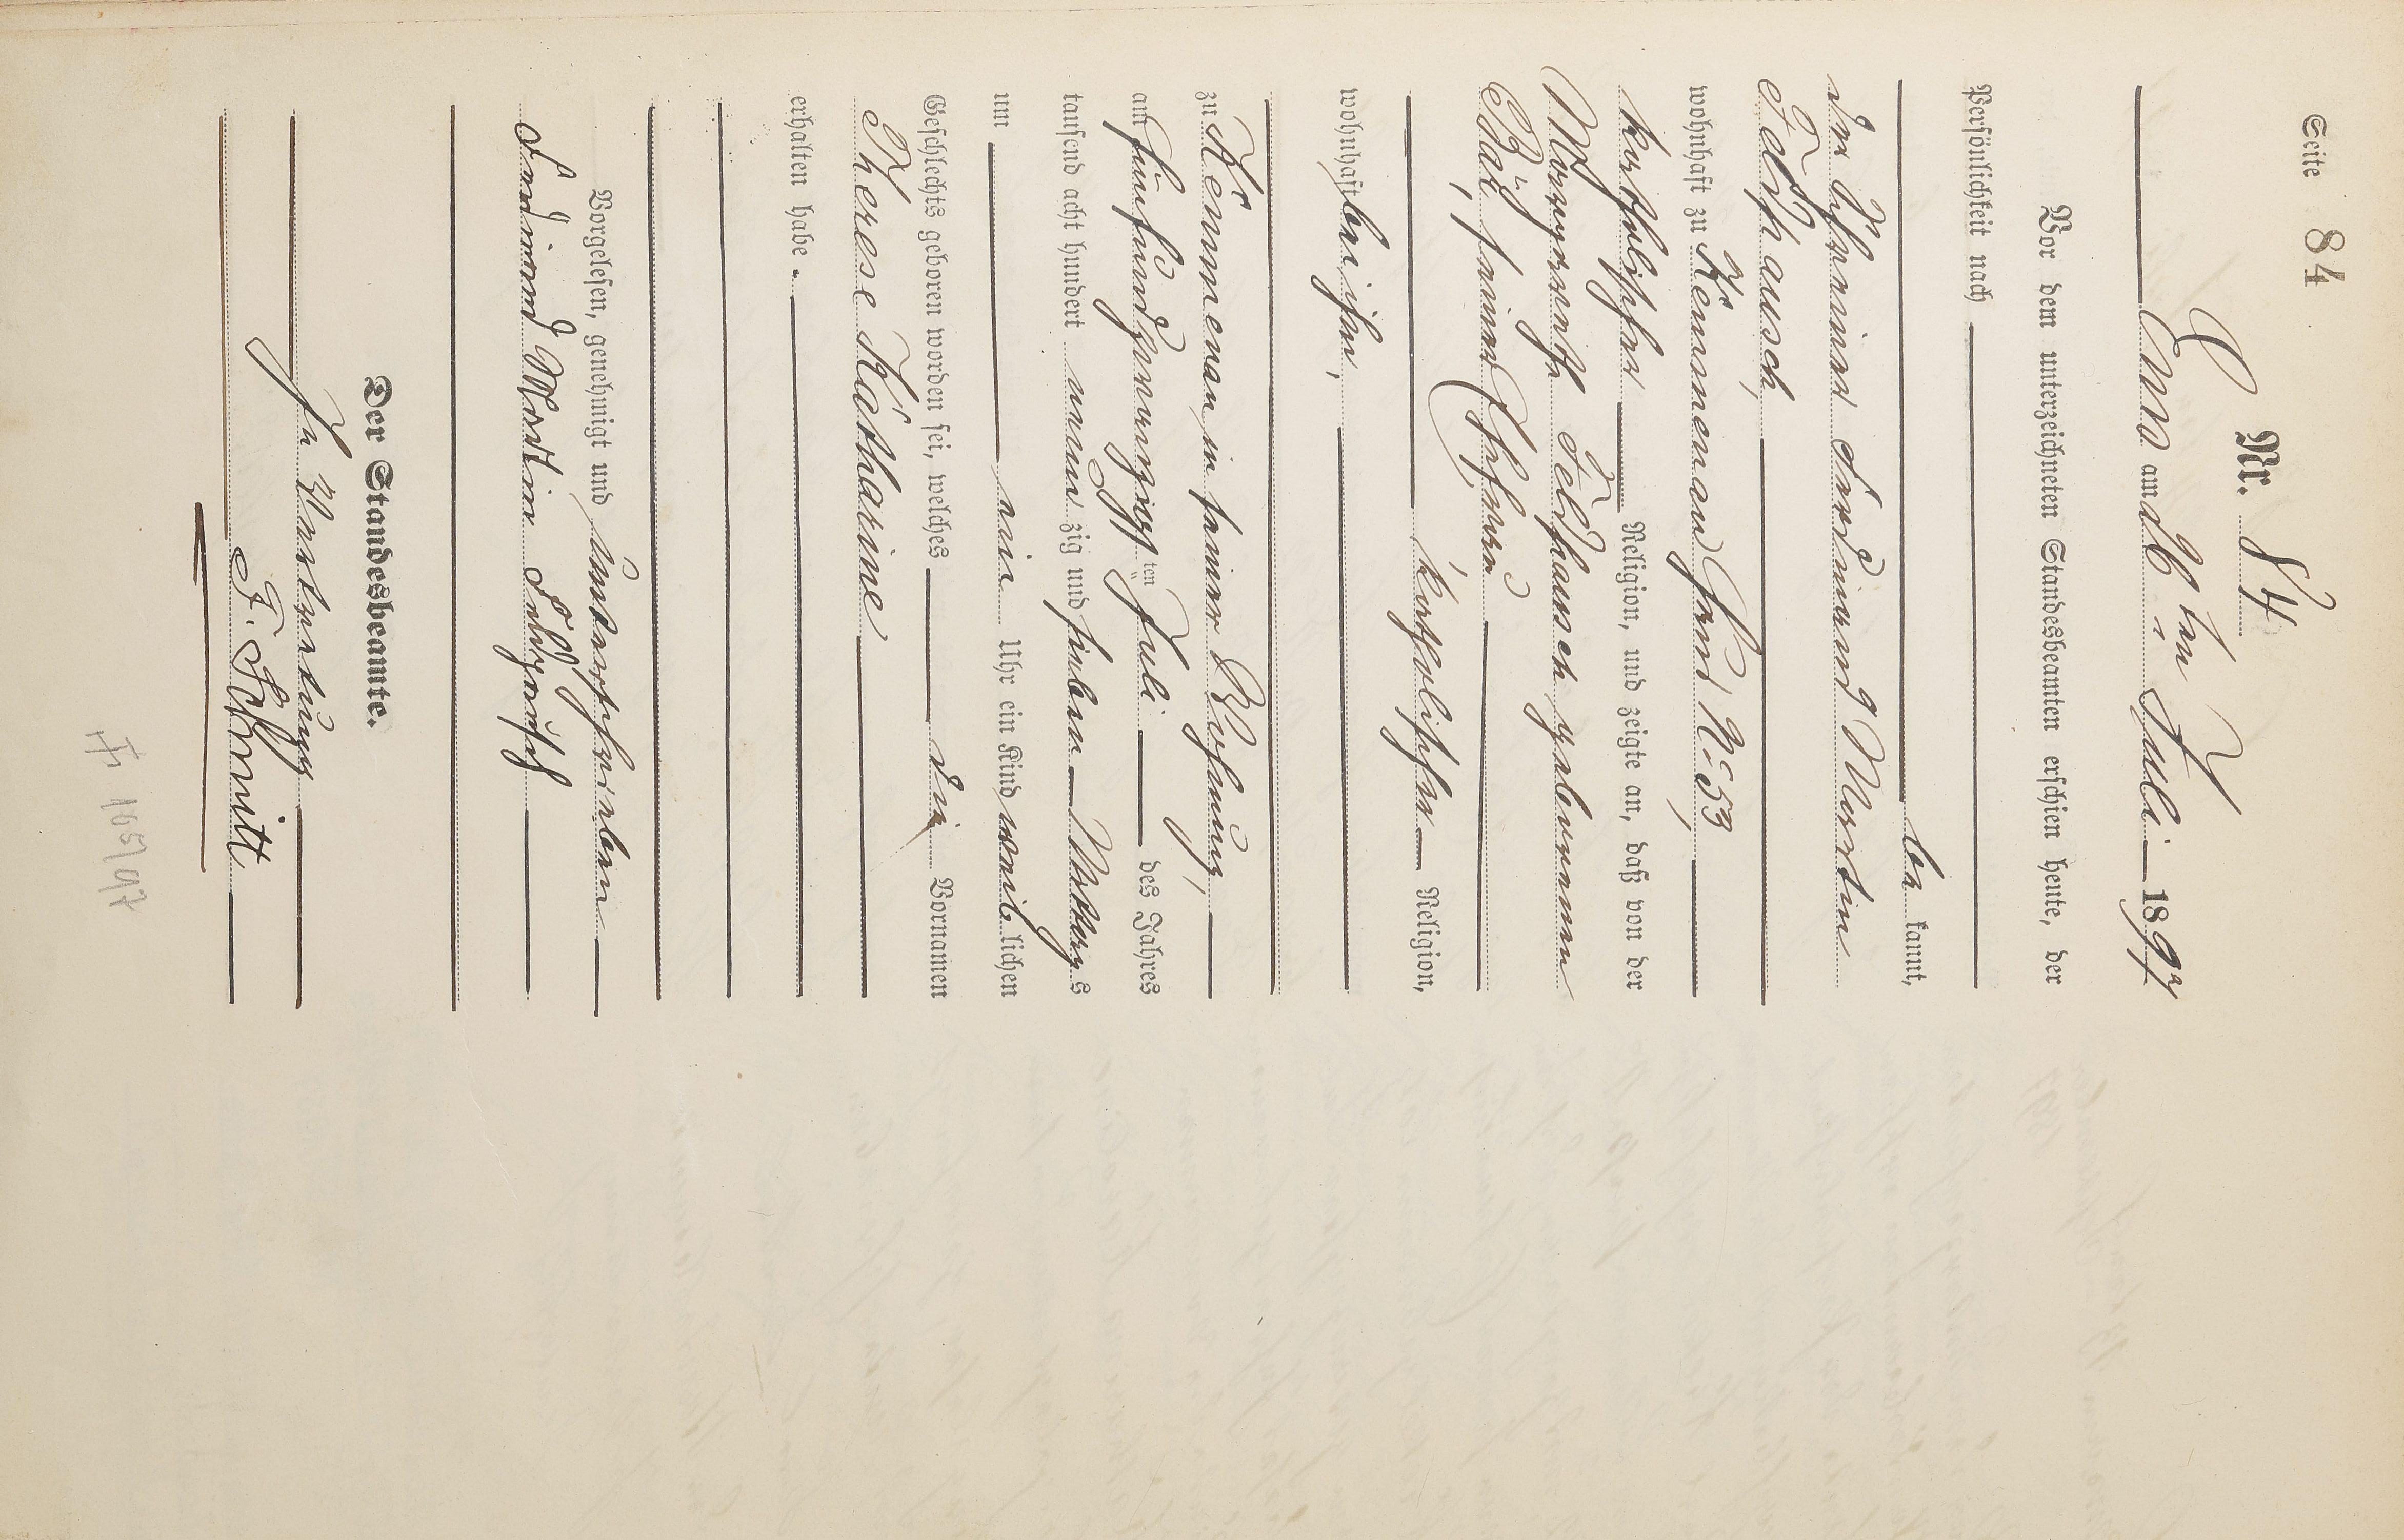 Seite 84
C
Nr. 84
Ems am 26ten Juli 1897
Vor dem unterzeichneten Standesbeamten erschien heute, der
Persönlichkeit nach
be kannt,
der Schreiner Ferdinand Martin
Feldhausch,
wohnhaft zu Kemmenau Haus No 53,
katholischer Religion, und zeigte an, daß von der
Margaretha Feldhausch geborenen
Bär, seiner Ehefrau
katholischer Religion,
wohnhaft bei ihm,
zu Kemmenau in seiner Wohnung,
am fünfundzwanzigsten Juli des Jahres
tausend acht hundert neun zig und sieben Mittags
um ein Uhr ein Kind weiblichen
Geschlechts geboren worden sei, welches die Vornamen
Therese Katharine
erhalten habe.
Vorgelesen, genehmigt und unterschrieben
Ferdinand Martin
Der Standesbeamte.
In Vertretung
F. Schmitt